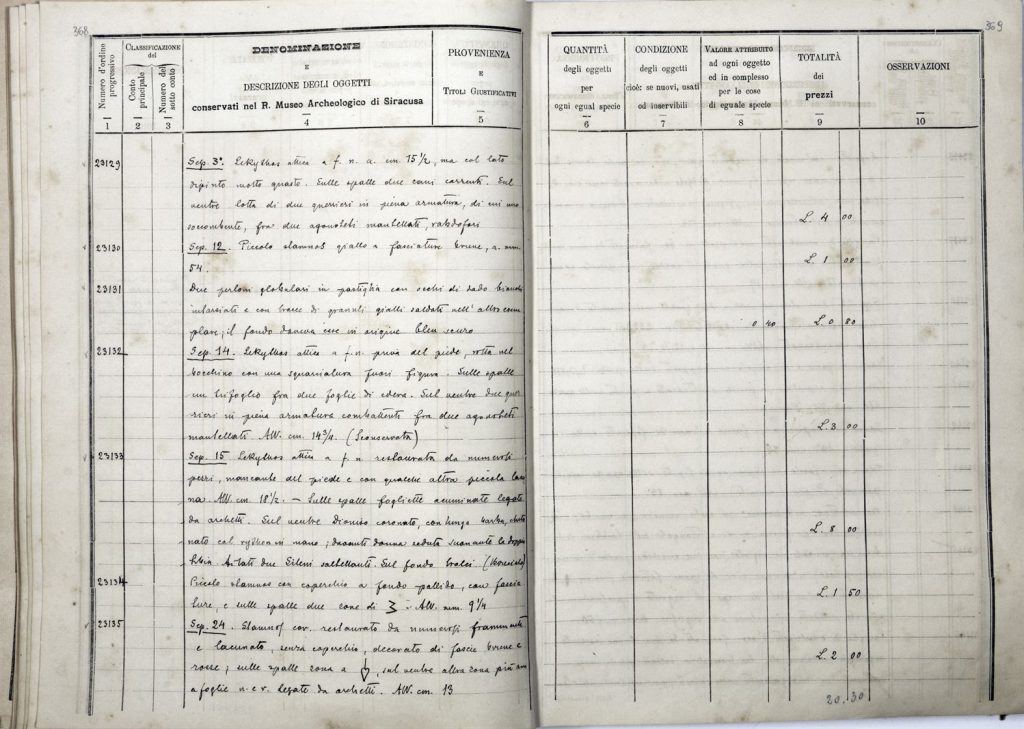 368
Numero d'ordine progressivo
CLASSIFICAZIONE
del
Conto principale
Numero del sotto conto
DENOMINAZIONE
E
DESCRIZIONE DEGLI OGGETTI
conservati nel R. Museo Archeologico di Siracusa
PROVENIENZA
E
TITOLI GIUSTIFICATIVI
1 2 3 4 5
23129 Sep. 3º. Lekythos attica a f. n. a. cm. 15 1/2, ma col lato
dipinto molto guasto. Sulle spalle due cani correnti. Sul
ventre lotta di due guerrieri in piena armatura, di cui uno
soccombente, fra due agonoteti mantellati, rabdofori
23130 Sep. 12. Piccolo stamnos giallo a fasciature brune, a. mm.
54.
23131 Due perloni globulari in pastiglia con occhi di dado bianchi
intarsiati e con bracc di granuli gialli saldati nell' altro esem
plare; il fondo doveva esse in origine bleu scuro
23132 Sep. 14. Lekythos attica a f. n. priva del piede, rotta nel
bocchino con una squarciatura fuori figura. Sulle spalle
un trifoglio fra due foglie di edera. Sul ventre due guer
rieri in piena armatura combattenti fra due agonoteti
mantellati. Alt. cm. 14 3/4. (Sconservata)
23133 Sep. 15 Lekythos attica a f. n. restaurata da numerosi
pezzi, mancante del piede e con qualche altra piccola lacu
na. Alt. cm. 18 1/2. – Sulle spalle fogliette acuminate legate
da archetti. Sul ventre Dioniso coronato, con lunga barba,
col rython in mano; davanti donna seduta suonante la doppia
Ai lati due Sileni saltellanti. Sul fondo tralci.
23134 Piccolo stamnos con coperchio a fondo pallido, con fascia
ture, e sulle spalle due zone di Alt. mm. 9 1/4
23135 Sep. 24. Stamnos cor. restaurato da numerosi frammenti
e lacunato, senza coperchio, decorato di fascie brune e
rosse; sulle spalle zona a , sul ventre altra zona più
a foglie n. e r. legate da archetti. Alt. cm. 13
369
QUANTITÀ
degli oggetti
per
ogni egual specie
CONDIZIONE
degli oggetti
cioè: se nuovi, usati
od inservibili
VALORE ATTRIBUITO
ad ogni oggetto
od in complesso
per le cose
di eguale specie
TOTALITÀ
dei
prezzi
OSSERVAZIONI
6 7 8 9 10
L. 4 00
L. 1 00
0 40 L. 0 80
L. 3 00
L. 8 00
L. 1 50
L. 2 00
20.30